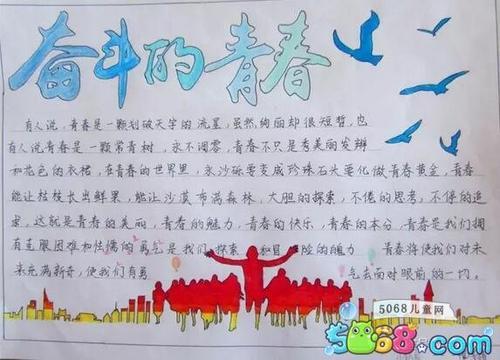 奋斗的青春
有人说,青春是一颗划破天宇的流星,虽然绚丽却很短暂,也
有人说青春是一颗常青树,永不调零,青春不只是秀美的发辫
和花色的衣裙,在青春的世界里,水沙砾要变成珍珠石头要化做青春黄金,青春
能让枯枝长出鲜果,能让沙漠布满森林,大胆的探索,不倦的思考,不停的追
求,这就是青春的美丽,青春的魅力,青春的快乐,青春的本分,青春是我们拥
有征服困难和怯懦的勇气是我们探索 和冒 险的魄力 青春将使我们对未
来充满新奇,使我们有勇 气去面对眼前的一切。
5068儿童网
5068.com